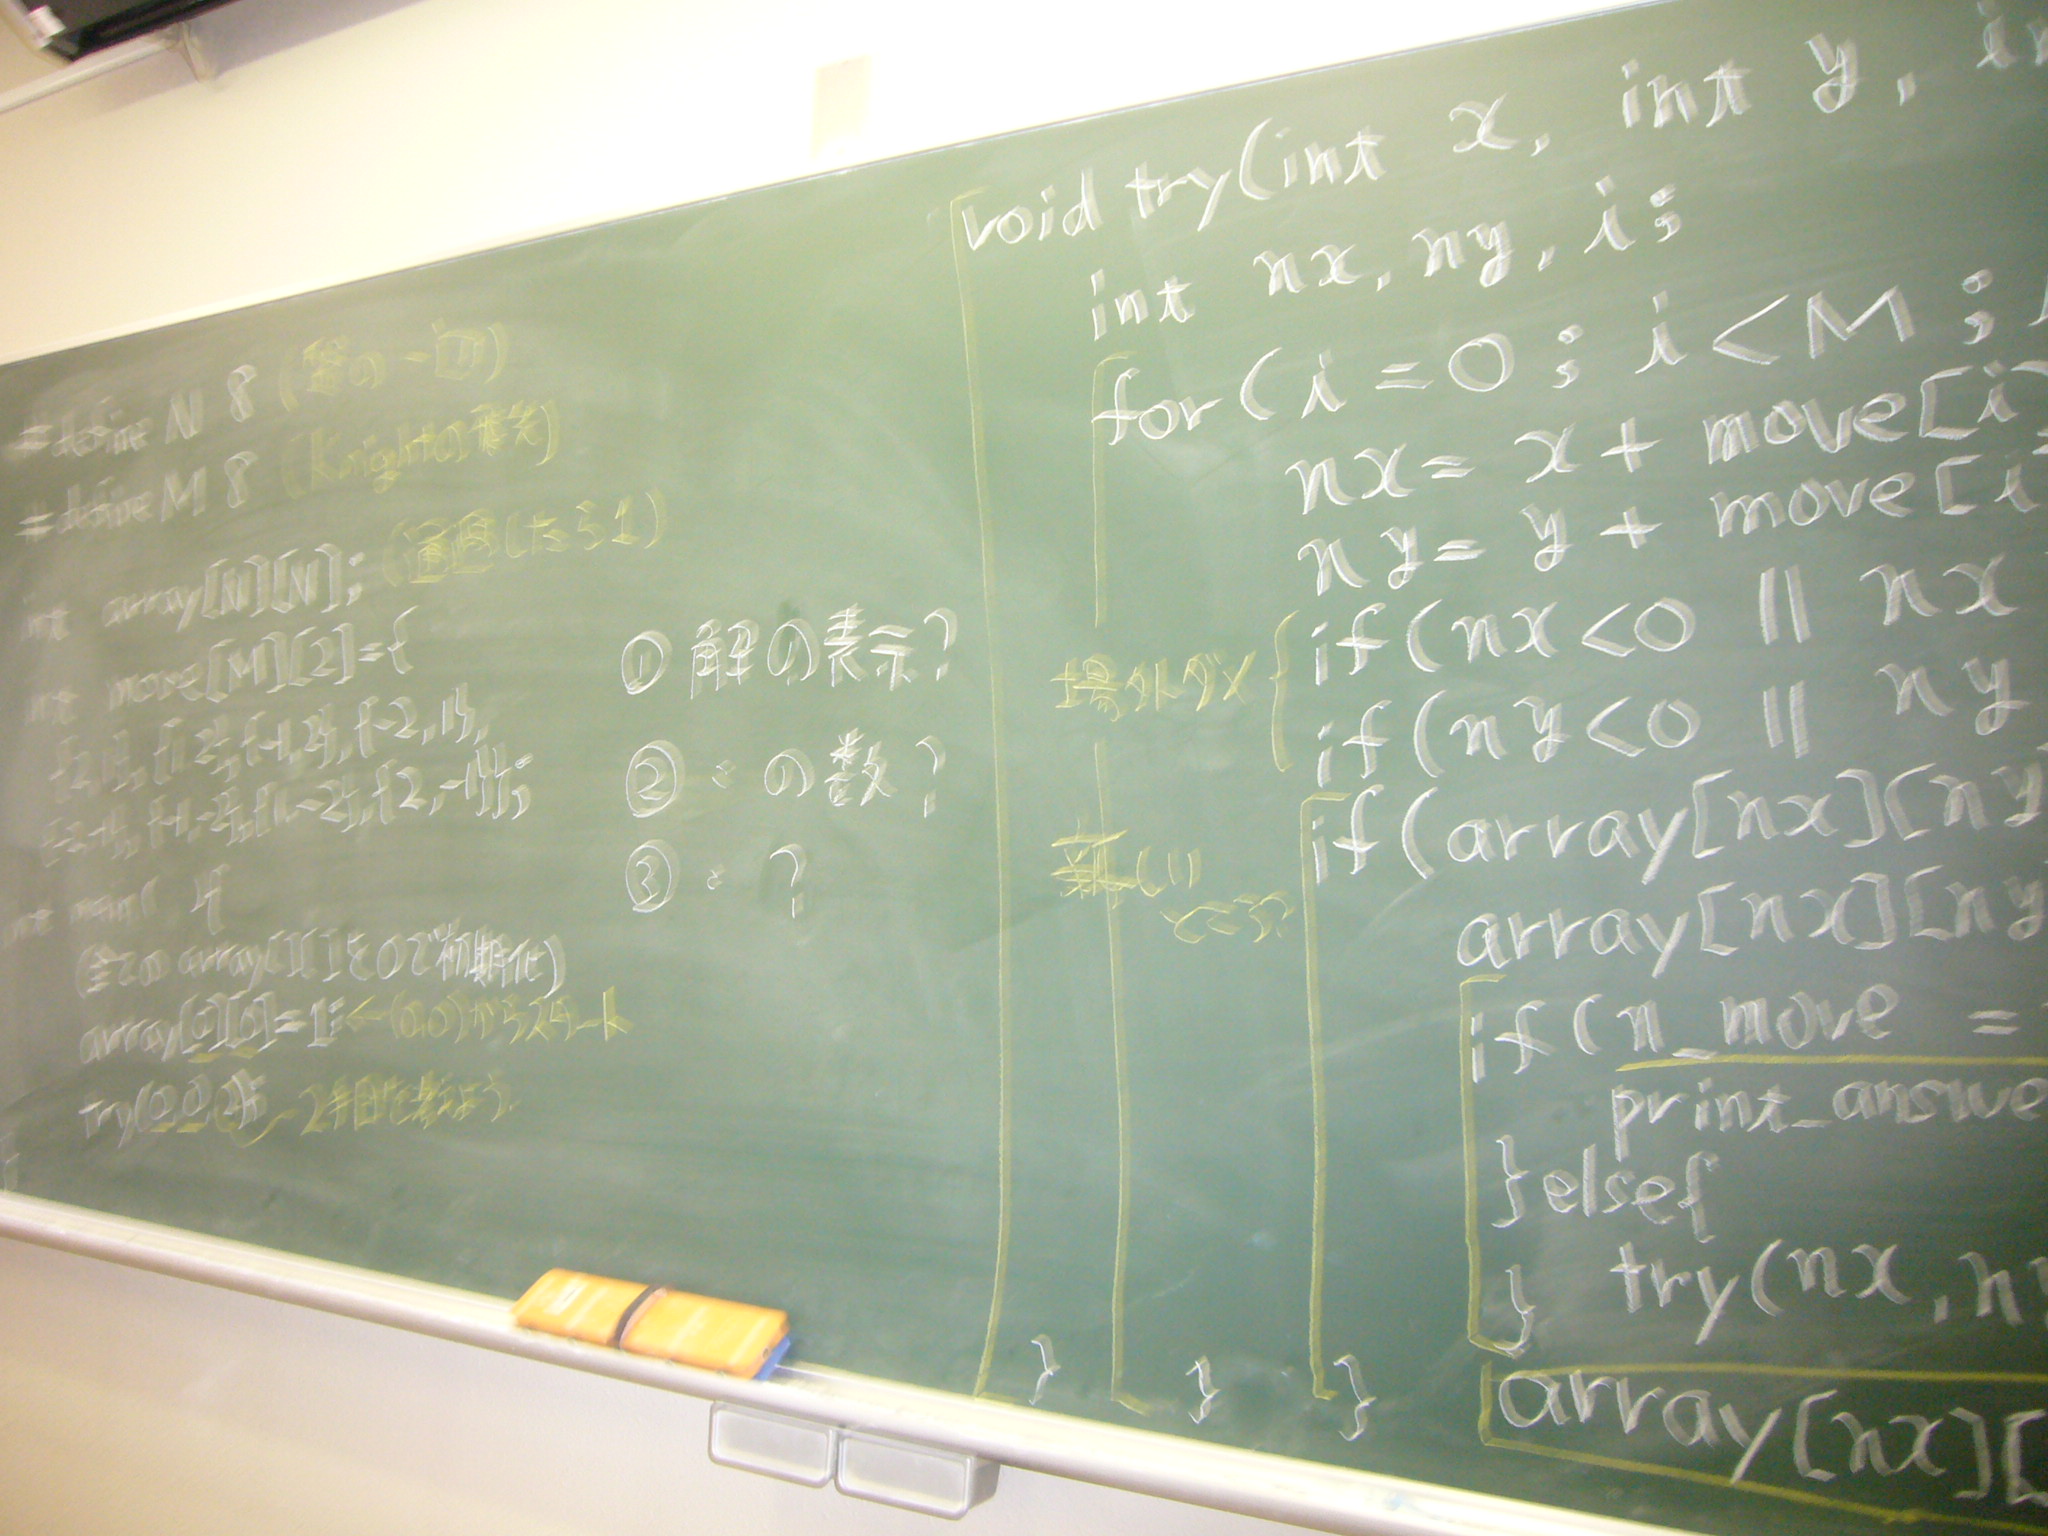 #define N 8 (盤の一辺)
#define M 8 (Knightの利き)
int array[N][N]; (通過したら1)
int move[M][2]={
{2,1},{1,2},{-1,2},{-2,1},
{-2,-1},{-1,-2},{1,-2},{2,-1}};
int main( ){
(全ての array[][]を0で初期化)
array[0][0]=1; ←(0,0)からスタート
try(0,0,2); 2手目を考えよう.
}
① 解の表示?
② 〃 の数?
③ 〃 ?
void try(int x, int y, in
int nx, ny, i;
for (i=0; i<M;
nx= x + move[i]
ny= y + move[i]
場外ダメ
if(nx<0 || nx
if(ny<0 || ny
新しい
ところ?
if(array[nx][ny
array[nx][ny
if(n_move =
print_answe
}else{
try(nx, ny
}
array[nx][
}
}
}